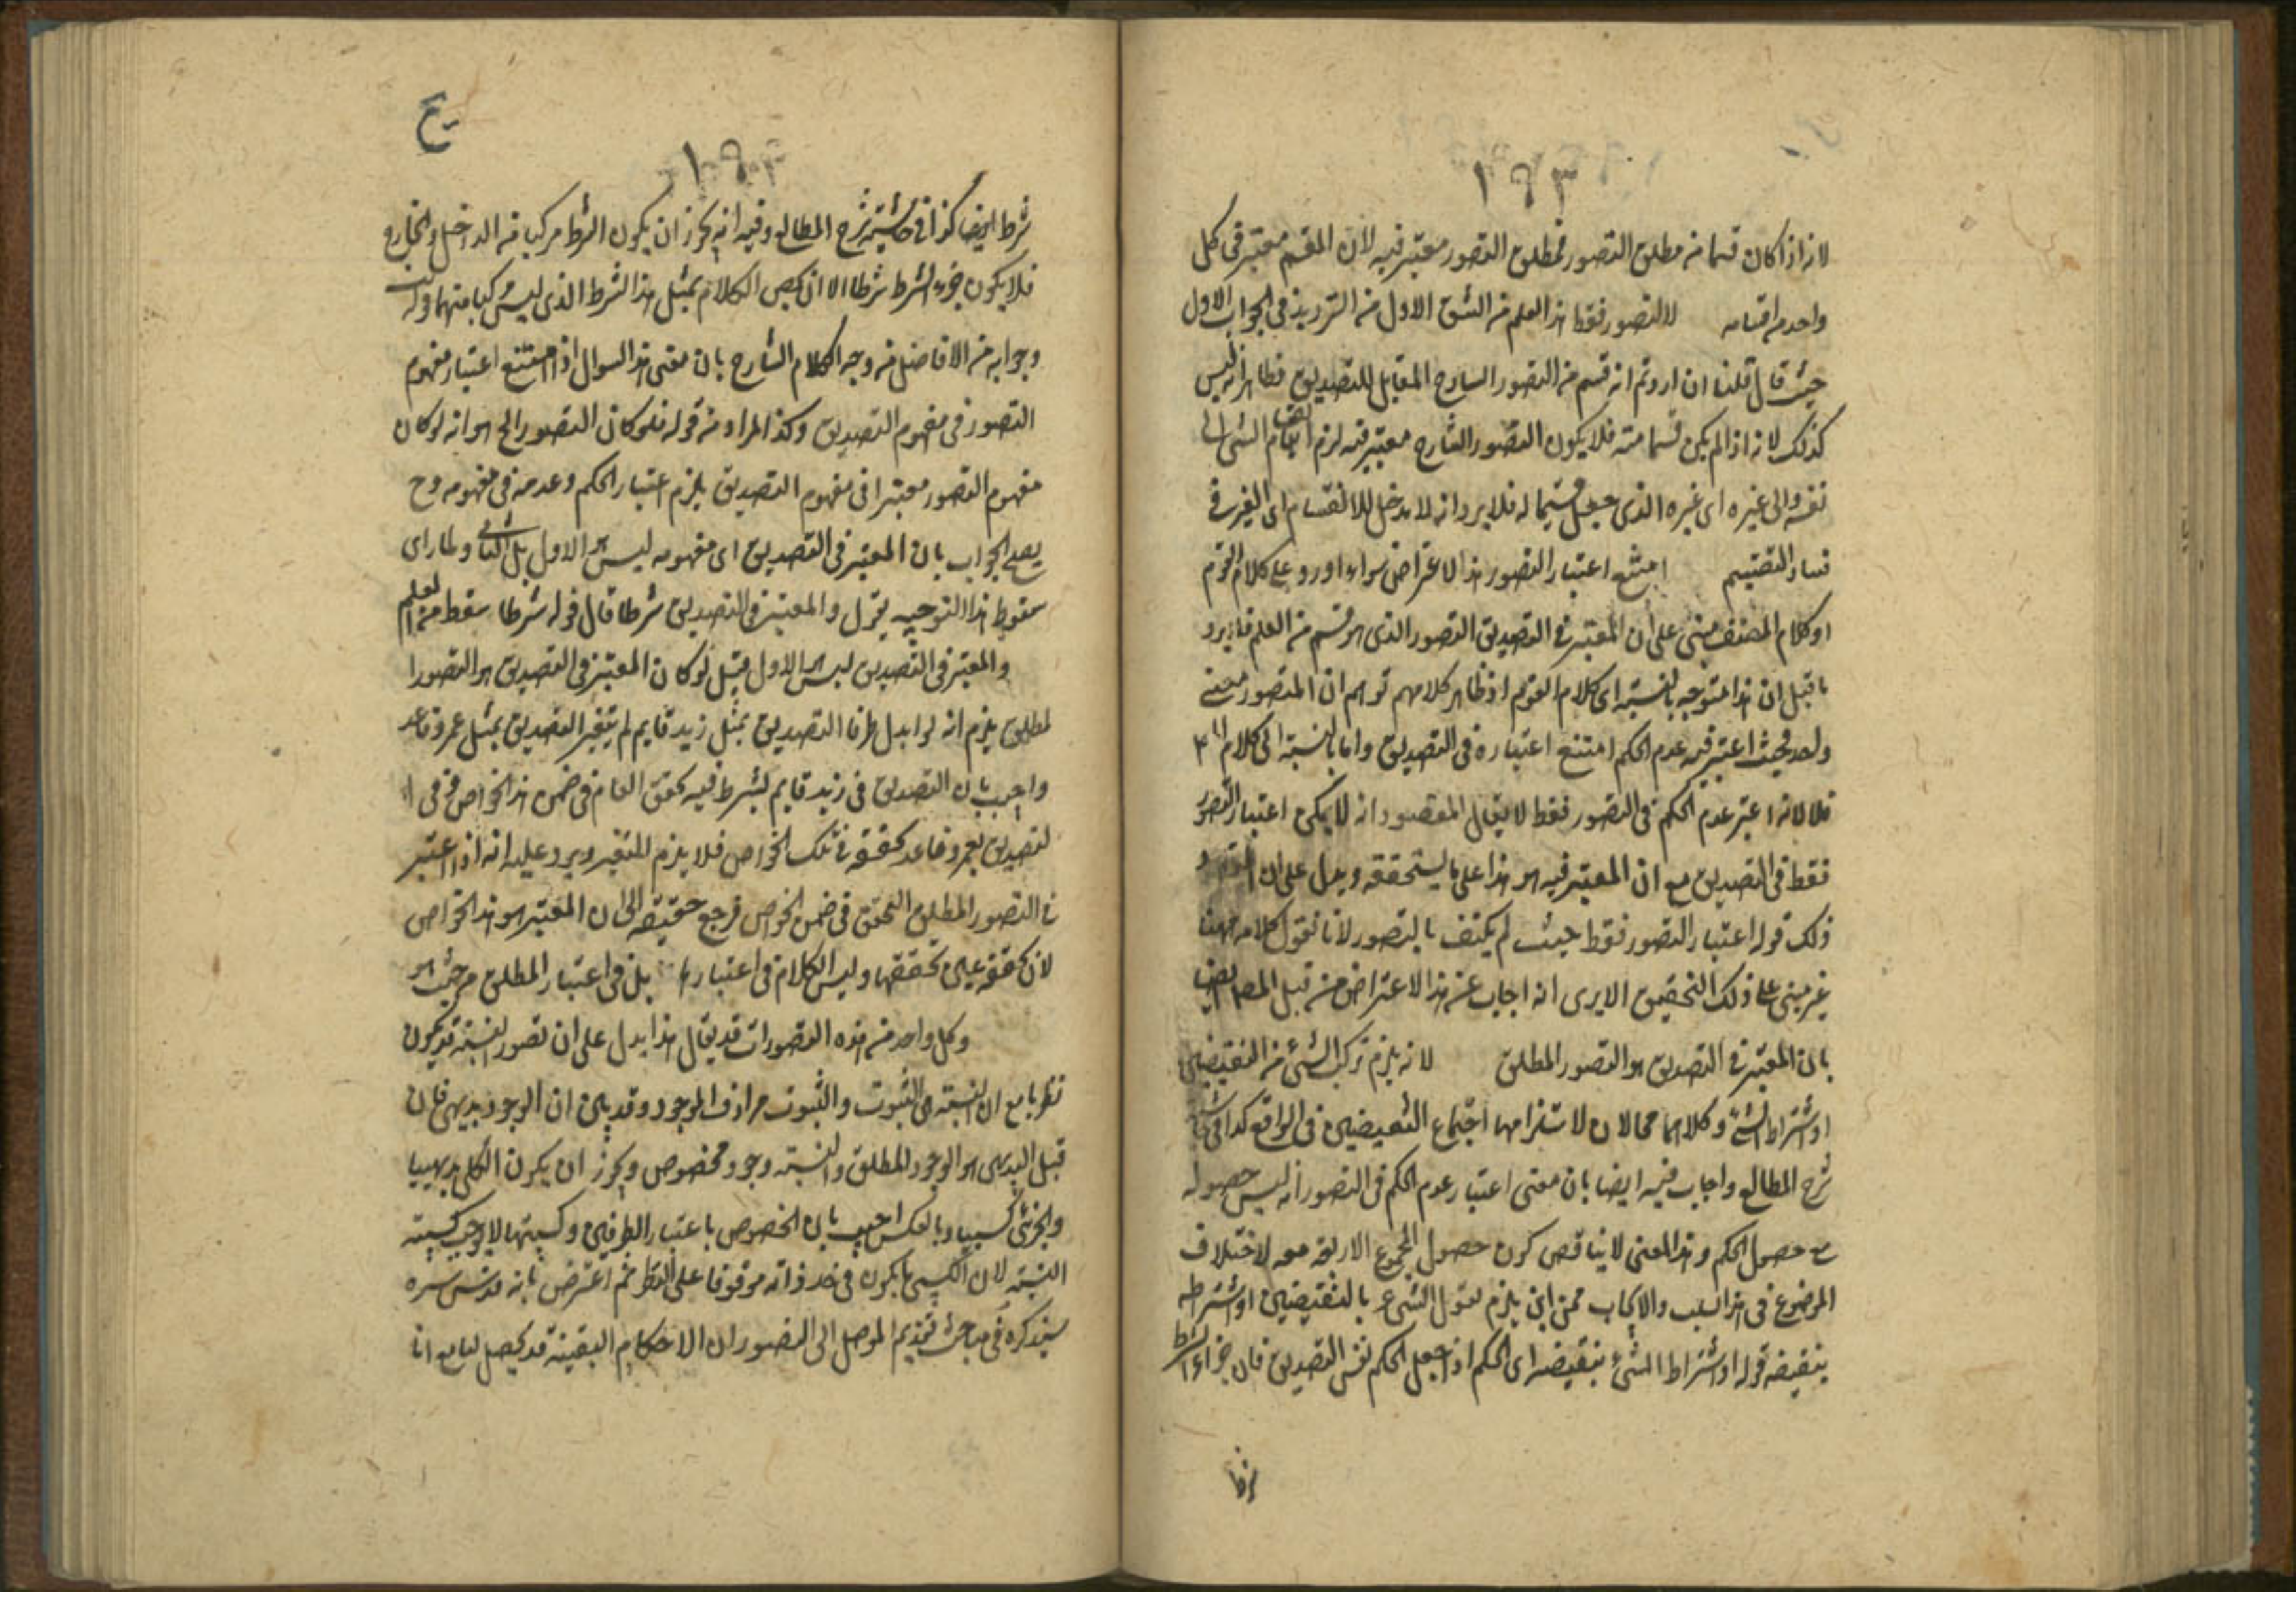 ١٩٣
لانه اذا كان قسما من مطلق التصور فمطلق التصور معتبر فيه لان المقسم معتبر فى كل
واحد من اقسامه لا التصور فقط هذا العلم من الشق الاول من الترديد فى الجواب الاول
حيث قال قلنا ان اردتم انه قسم من التصور الساذج المقابل للتصديق فظاهر انه ليس
كذلك لانه اذا لم يكن قسما منه فلا يكون التصور الساذج معتبر فيه لزم انقسام الشئ الى
نفسه والى غيره اى غيره الذى جعل قسيما له فلا يرد انه لا مدخل للانقسام اى الغير فى
فساد التقسيم امتنع اعتبار التصور هذا الاعتراض سواء اورد على كلام القوم
او كلام المصنف مبنى على ان المعتبر فى التصديق التصور الذى هو قسم من العلم فما يرد
ما قيل ان هذا متوجه بالنسبة الى كلام القوم اذ ظاهر كلامهم توهم ان المتصور معنى
واحد فحيث اعتبر فيه عدم الحكم امتنع اعتباره فى التصديق واما بالنسبة الى كلام
فلا لانه اعتبر عدم الحكم فى التصور فقط لا يقال المقصود انه لا يمكن اعتبار التصور
فقط فى التصديق مع ان المعتبر فيه هو هذا على ما يستحققه ويدل على ان
ذلك قوله اعتبار التصور فقط حيث لم يكتف بالتصور لانا نقول كلامه ههنا
غير مبنى على ذلك التحقيق الا يرى انه اجاب عن هذا الاعتراض من قبل المص ايضا
بان المعتبر فى التصديق هو التصور المطلق لانه يلزم تركب الشئ من النقيضين
او اشتراط الشئ وكلاهما محالان لاستلزامهما اجتماع النقيضين فى الواقع كذا فى
شرح المطالع واجاب فيه ايضا بان معنى اعتبار عدم الحكم فى التصور انه ليس حصوله
مع حصول الحكم وهذا المعنى لا يناقض كون حصول المجموع الاربعة معه لاختلاف
الموضوع فى هذا السلب والايجاب فمن اين يلزم تقول الشئ بالنقيضين او اشتراطه
بنقيضه قوله او اشتراط الشئ بنقيضه اى الحكم اذا جعل الحكم نفس التصديق فان جزاء الشرط
شرط ايضا كذا فى حاشية شرح المطالع وفيه انه يجوز ان يكون الشرط مركبا من الداخل والخارج
فلا يكون جزء الشرط شرطا الا ان يخص الكلام بمثل هذا الشرط الذى ليس مركبا منهما
وجوابه من الافاضل من وجه كلام الشارح بان معنى هذا السوال اذا امتنع اعتبار مفهوم
التصور فى مفهوم التصديق وكذا المراد من قوله فلو كان التصور الخ هو انه لو كان
مفهوم التصور معتبرا فى مفهوم التصديق يلزم اعتبار الحكم وعدمه فى مفهومه وح
يصح الجواب بان المعتبر فى التصديق اى مفهومه ليس هو الاول بل الثانى ولما راى
سقوط هذا التوجيه بقول والمعتبر فى التصديق شرطا قال قوله شرطا سقط من العلم
والمعتبر فى التصديق ليس هو الاول قيل لو كان المعتبر فى التصديق هو التصور ا
لمطلق يلزم انه لو ابدل طرفا التصديق بمثل زيد قايم لم يتغير التصديق بمثل عمرو قاعد
واجيب بان التصديق فى زيد قايم يشرط فيه تحقق العام فى ضمن هذا الخواص وفى ا
لتصديق بعمرو قاعد تحققه فى تلك الخواص فلا يلزم التغير ويرد عليه انه اذا اعتبر
التصور المطلق المتحقق فى ضمن الخواص فرجع حقيقته الى ان المعتبر هو هذا الخواص
لان تحققه عين تحققها وليس الكلام فى اعتبارها بل فى اعتبار المطلق من حيث هو
وكل واحد من هذه التصورات قد يقال هذا يدل على ان تصور النسبة قد يكون
نظريا مع ان النسبة هى الثبوت والثبوت مرادف الوجود وقد بين ان الوجود بديهى فان
قيل البديهى هو الوجود المطلق والنسبة وجود مخصوص ويجوز ان يكون الكلى بديهيا
والجزئى كسبيا وبالعكس اجيب بان الخصوص باعتبار الطرفين وكسبيتها لا يوجب كسبية
النسبة لان الكسبى ما يكون فى حد ذاته موقوفا على النظر ثم اعترض بانه قدس سره
سيذكره فى مباحث تقديم الموصل الى التصور ان الاحكام اليقينة قد يحصل لنا مع انا